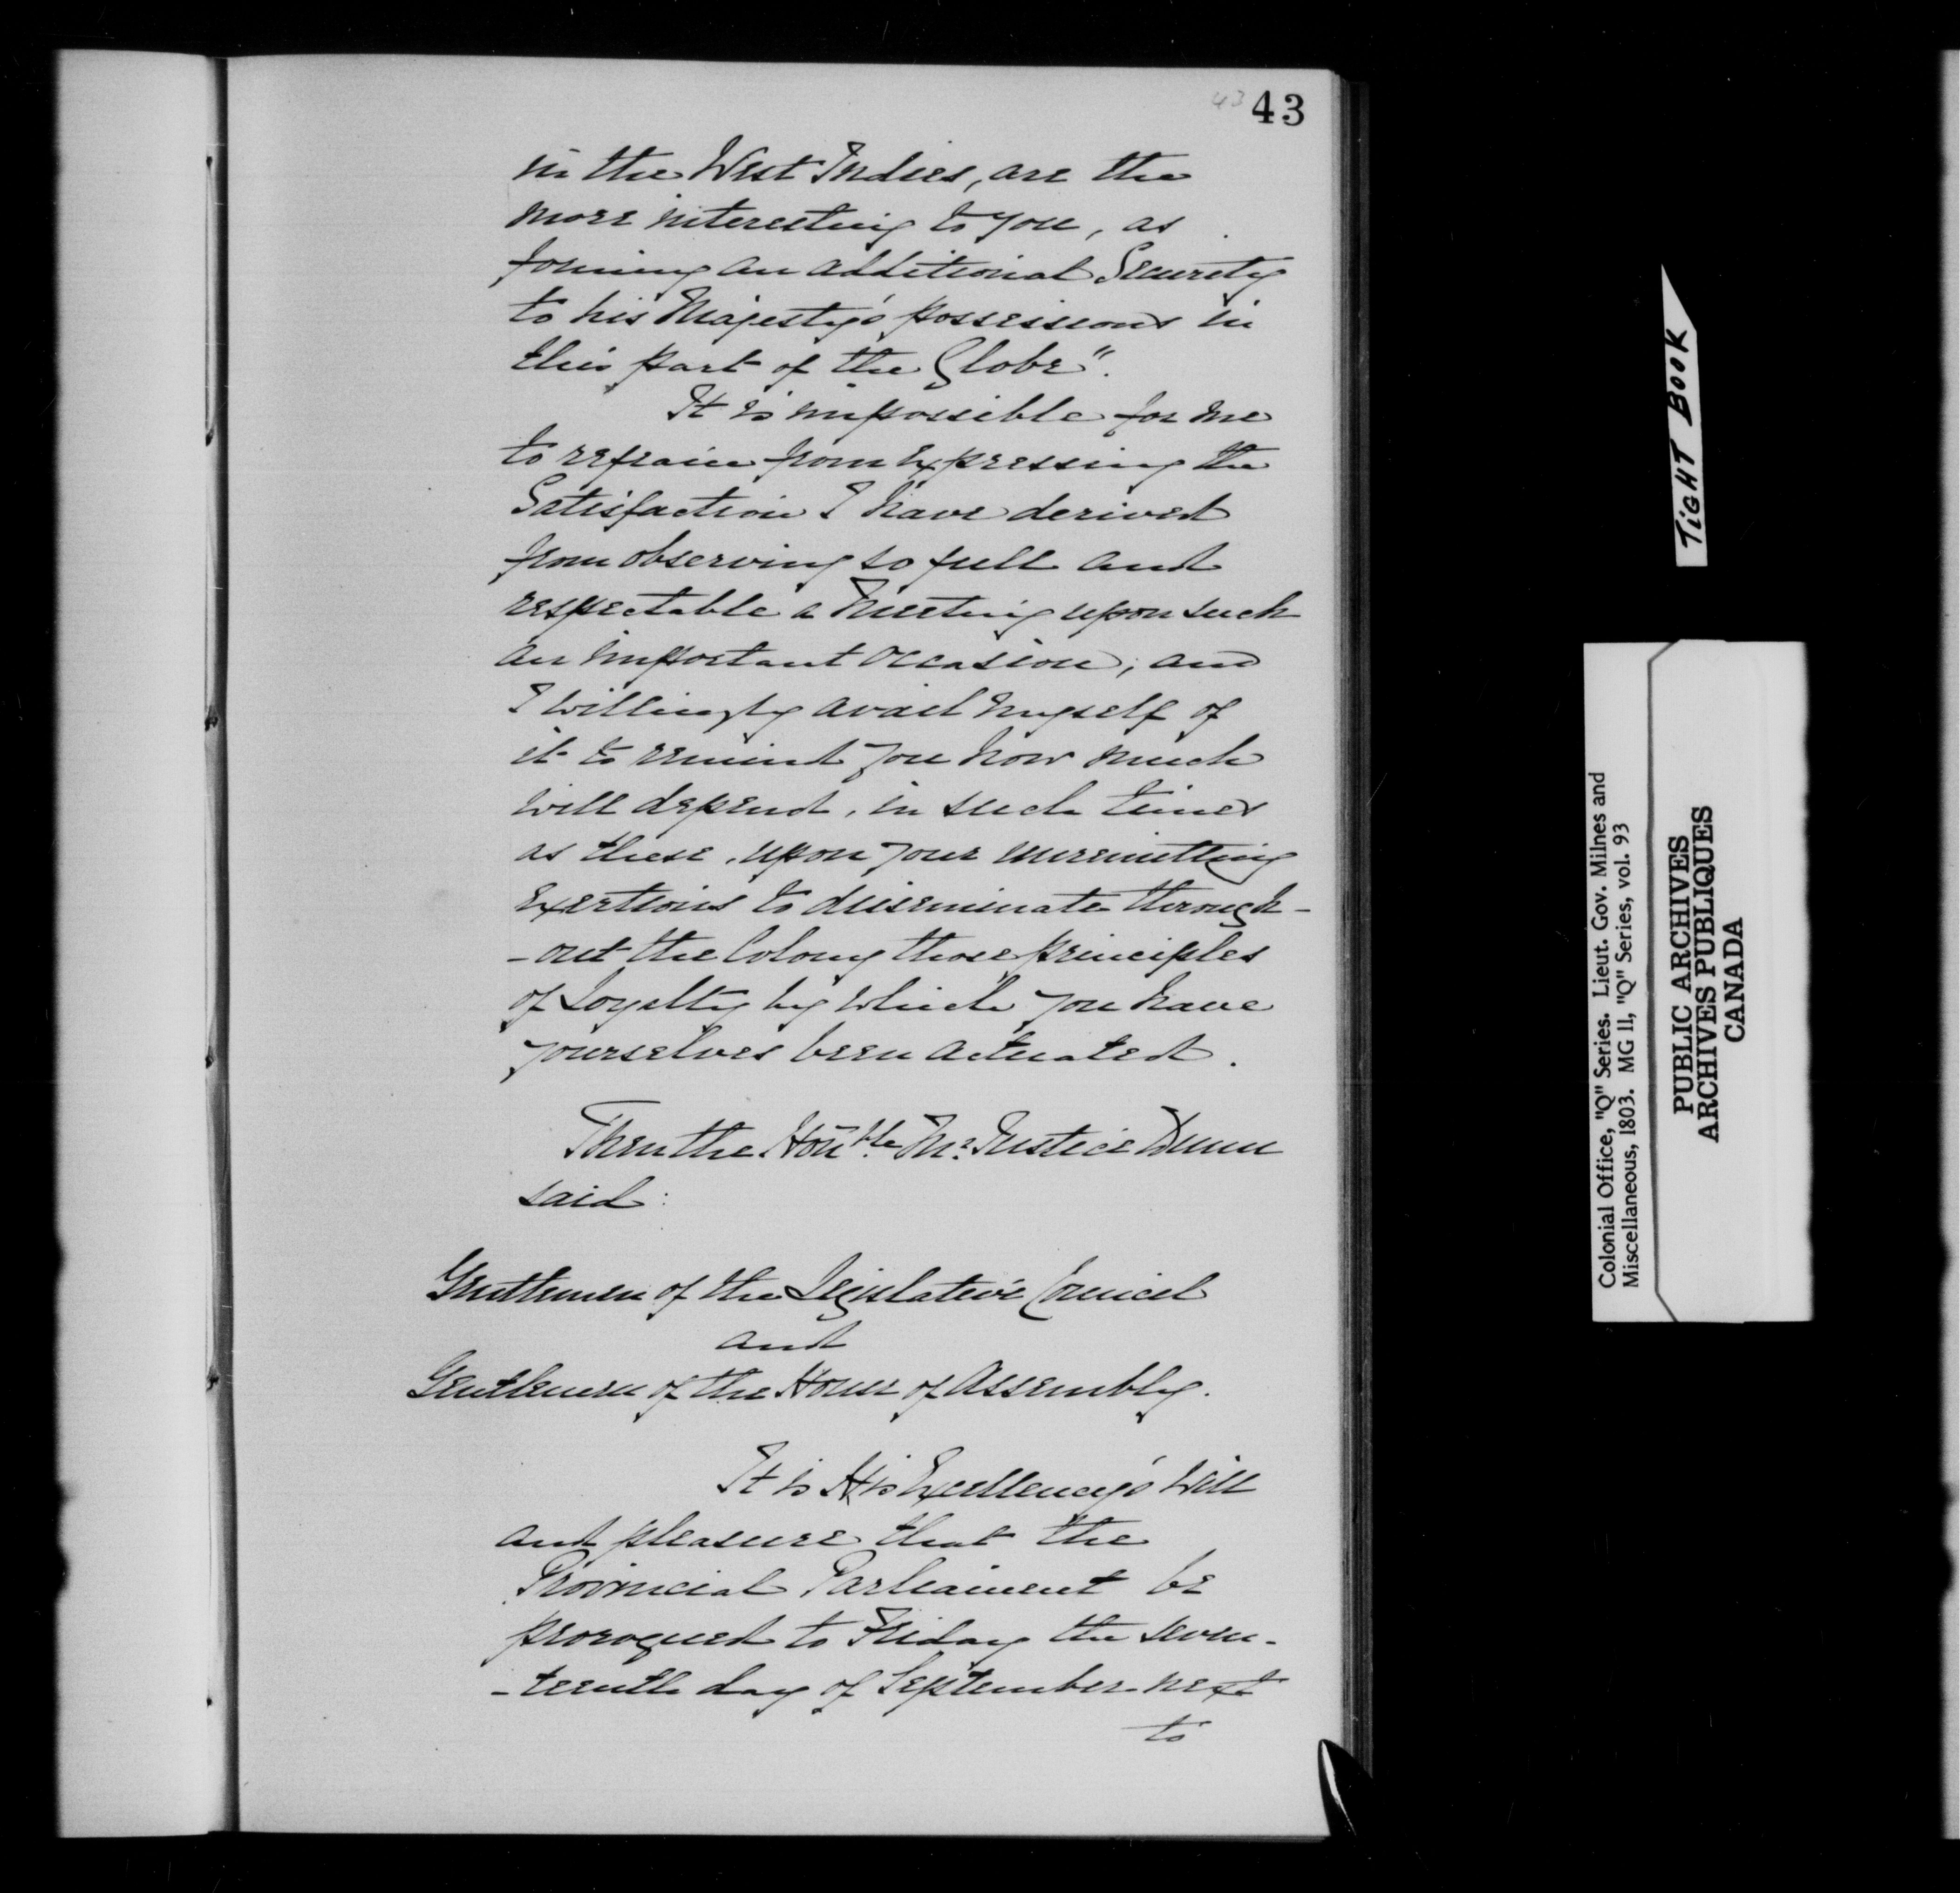 43 43
in the West Indies, are the
more interesting to you, as
forming an additional Security
to his Majesty's possessions in
this part of the Globe".
It is impossible for me
to refrain from expressing the
Satisfaction I have derived
from observing so full and
respectable a Meeting upon such
an important occasion; and
I willingly avail myself of
it to remind you how much
will depend, in such times
as these, upon your unremitting
exertions to disseminate through-
-out the Colony those principles
of Loyalty by which you have
yourselves been actuated.
Then the Honble. Mr. Justice Dunn
said:
Gentlemen of the Legislative Council
and
Gentlemen of the House of Assembly.
It is His Excellency's will
and pleasure that the
Provincial Parliament be
prorogued to Friday the seven-
-teenth day of September next
to
TIGHT BOOK
Colonial Office, "Q" Series. Lieut. Gov. Milnes and
Miscellaneous, 1803. MG 11, "Q" Series, vol. 93
PUBLIC ARCHIVES
ARCHIVES PUBLIQUES
CANADA